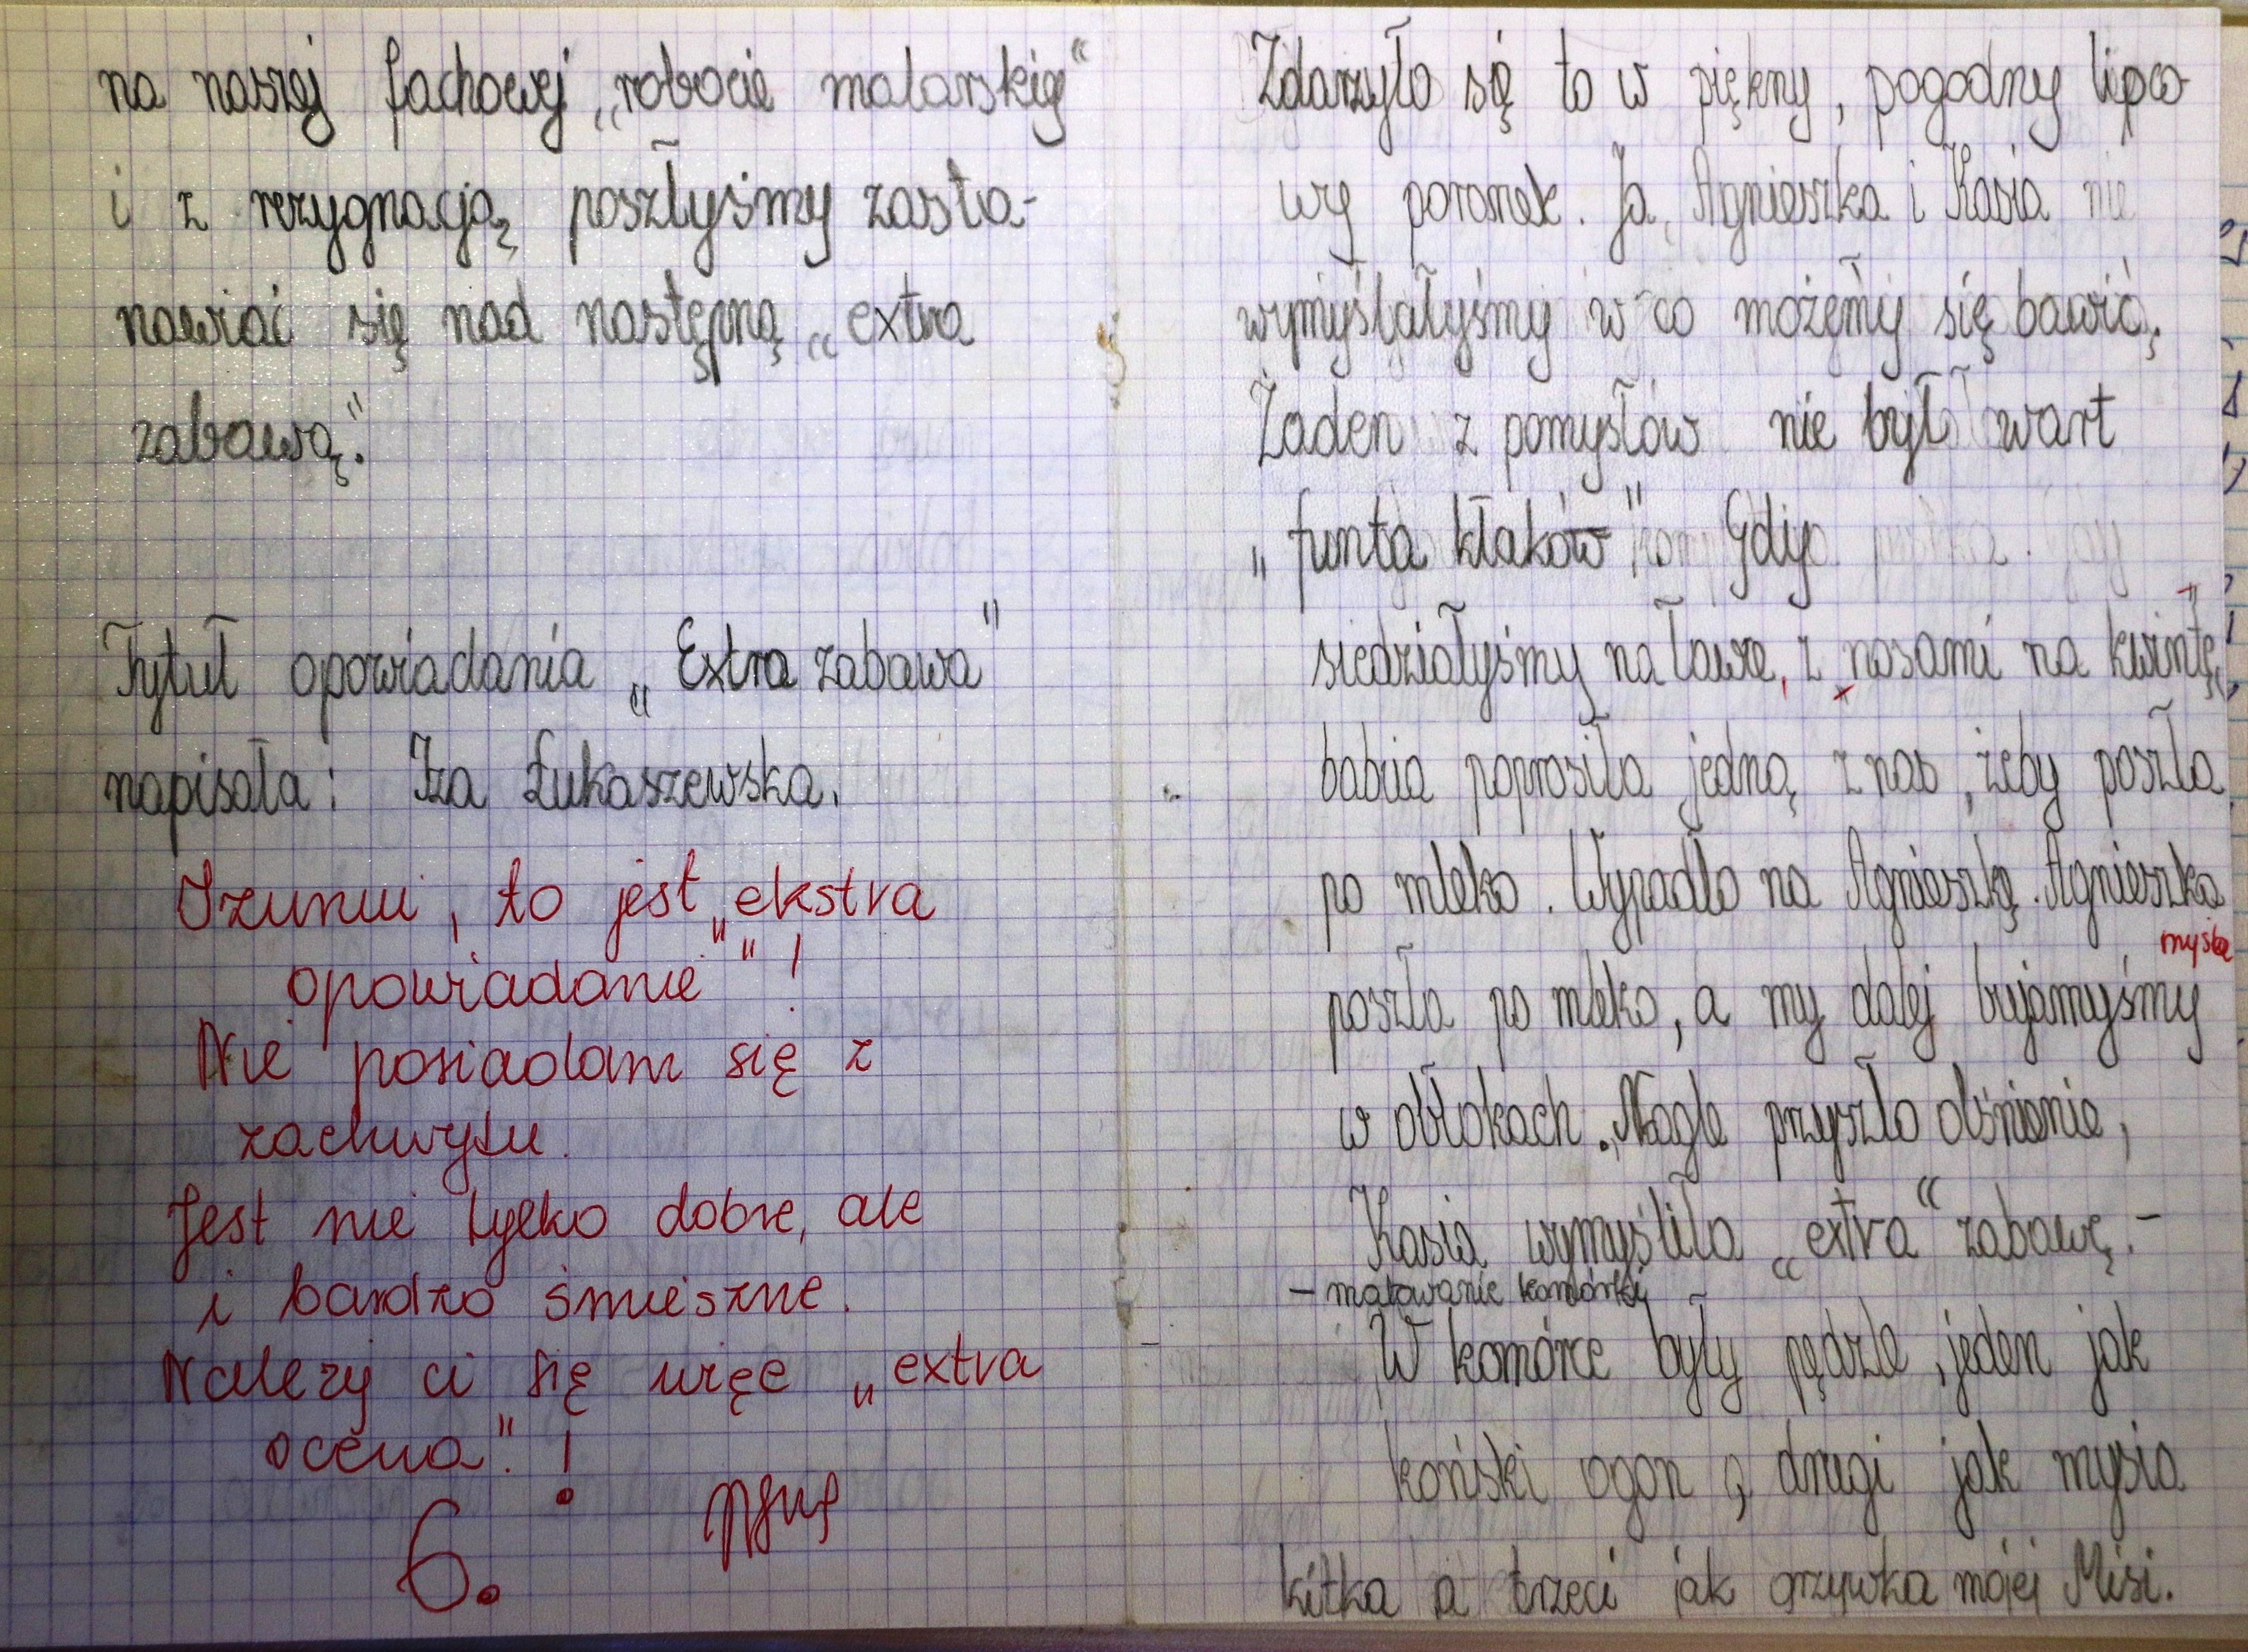 na naszej fachowej „robocie malarskiej"
i z rezygnacją poszłyśmy zasta-
nawiać się nad następną „extra
zabawą."
Tytuł opowiadania „Extra zabawa"
napisała: Iza Łukaszewska.
Izuniu, to jest „ekstra
opowiadanie"!
Nie posiadam się z
zachwytu.
Jest nie tylko dobre, ale
i bardzo śmieszne.
Należy ci się więc „extra
ocena"!
6.
Zdarzyło się to w piękny, pogodny lipco
wy poranek. Ja, Agnieszka i Kasia nie
wymyślałyśmy w co możemy się bawić.
Żaden z pomysłów nie był wart
„funta kłaków". Gdy
siedziałyśmy na ławce, z nosami na kwintę,
babcia poprosiła jedną z nas, żeby poszła
po mleko. Wypadło na Agnieszkę. Agnieszka
poszła po mleko, a my dalej bujamyśmy
w obłokach. Nagle przyszło olśnienie,
Kasia wymyśliła „extra" zabawę. -
- malowanie komórki
W komórce były pędzle, jeden jak
koński ogon, drugi jak mysia
kitka a trzeci jak grzywka mojej Misi.